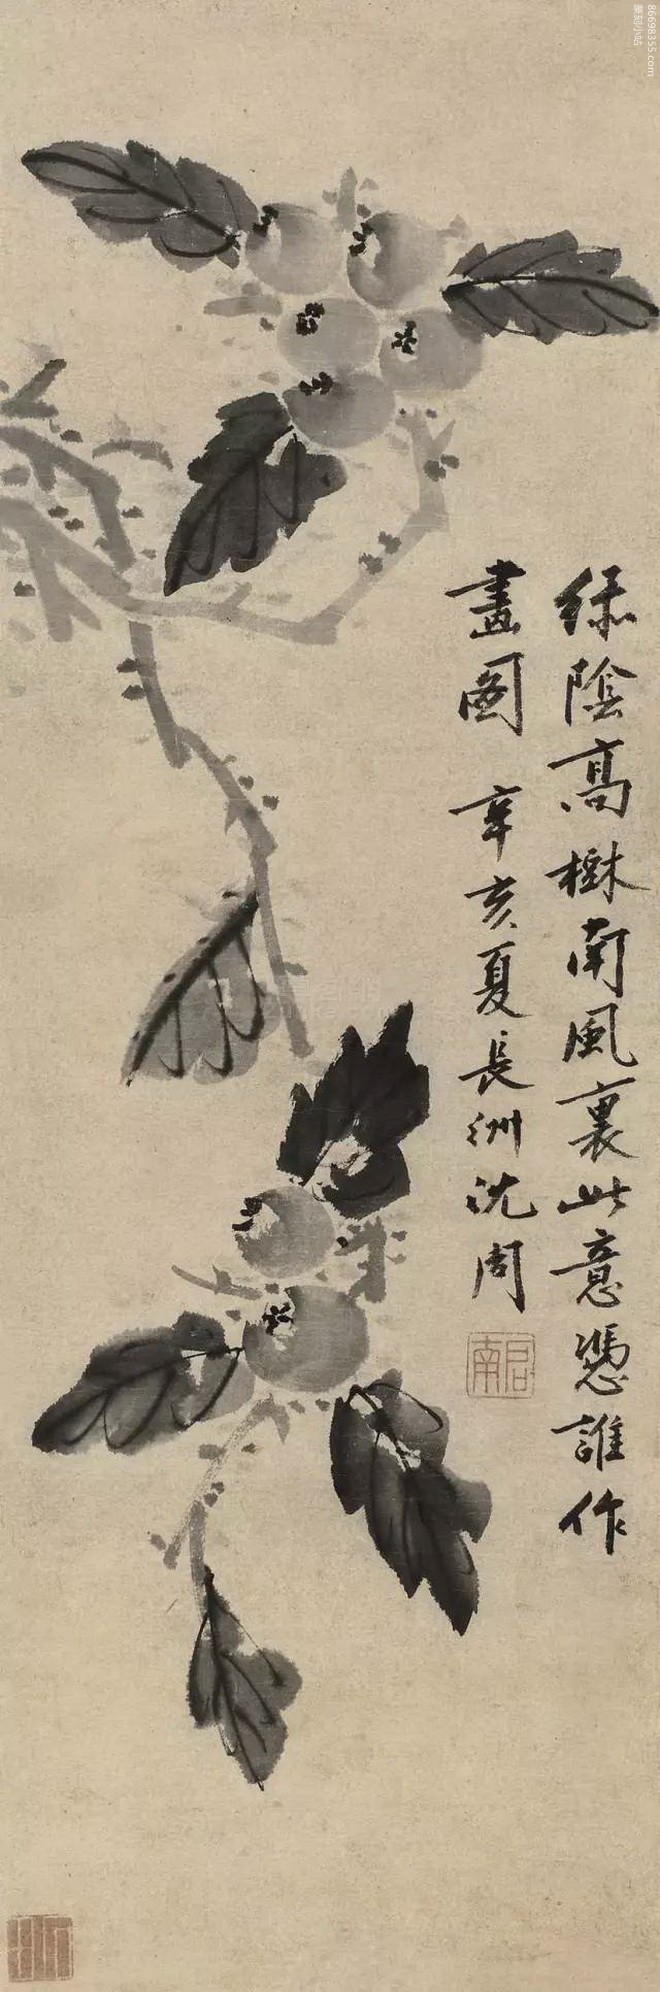 绿陰高樹南風裏此意憑誰作
畫圖 辛亥夏長洲沈周
啟南
86698355.com
篆刻小站